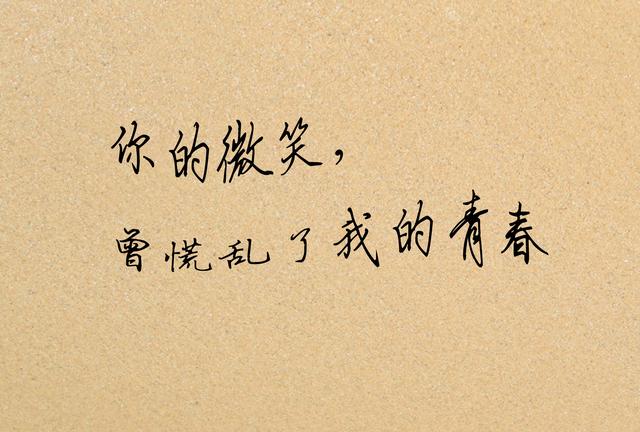 你的微笑，
曾慌乱了我的青春